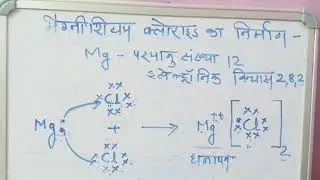 मैग्नीशियम क्लोराइड का निर्माण -
Mg - परमाणु संख्या 12
इलेक्ट्रॉनिक विन्यास 2,8,2
Cl
Mg + → Mg++ [Cl]2
Cl
धनायन